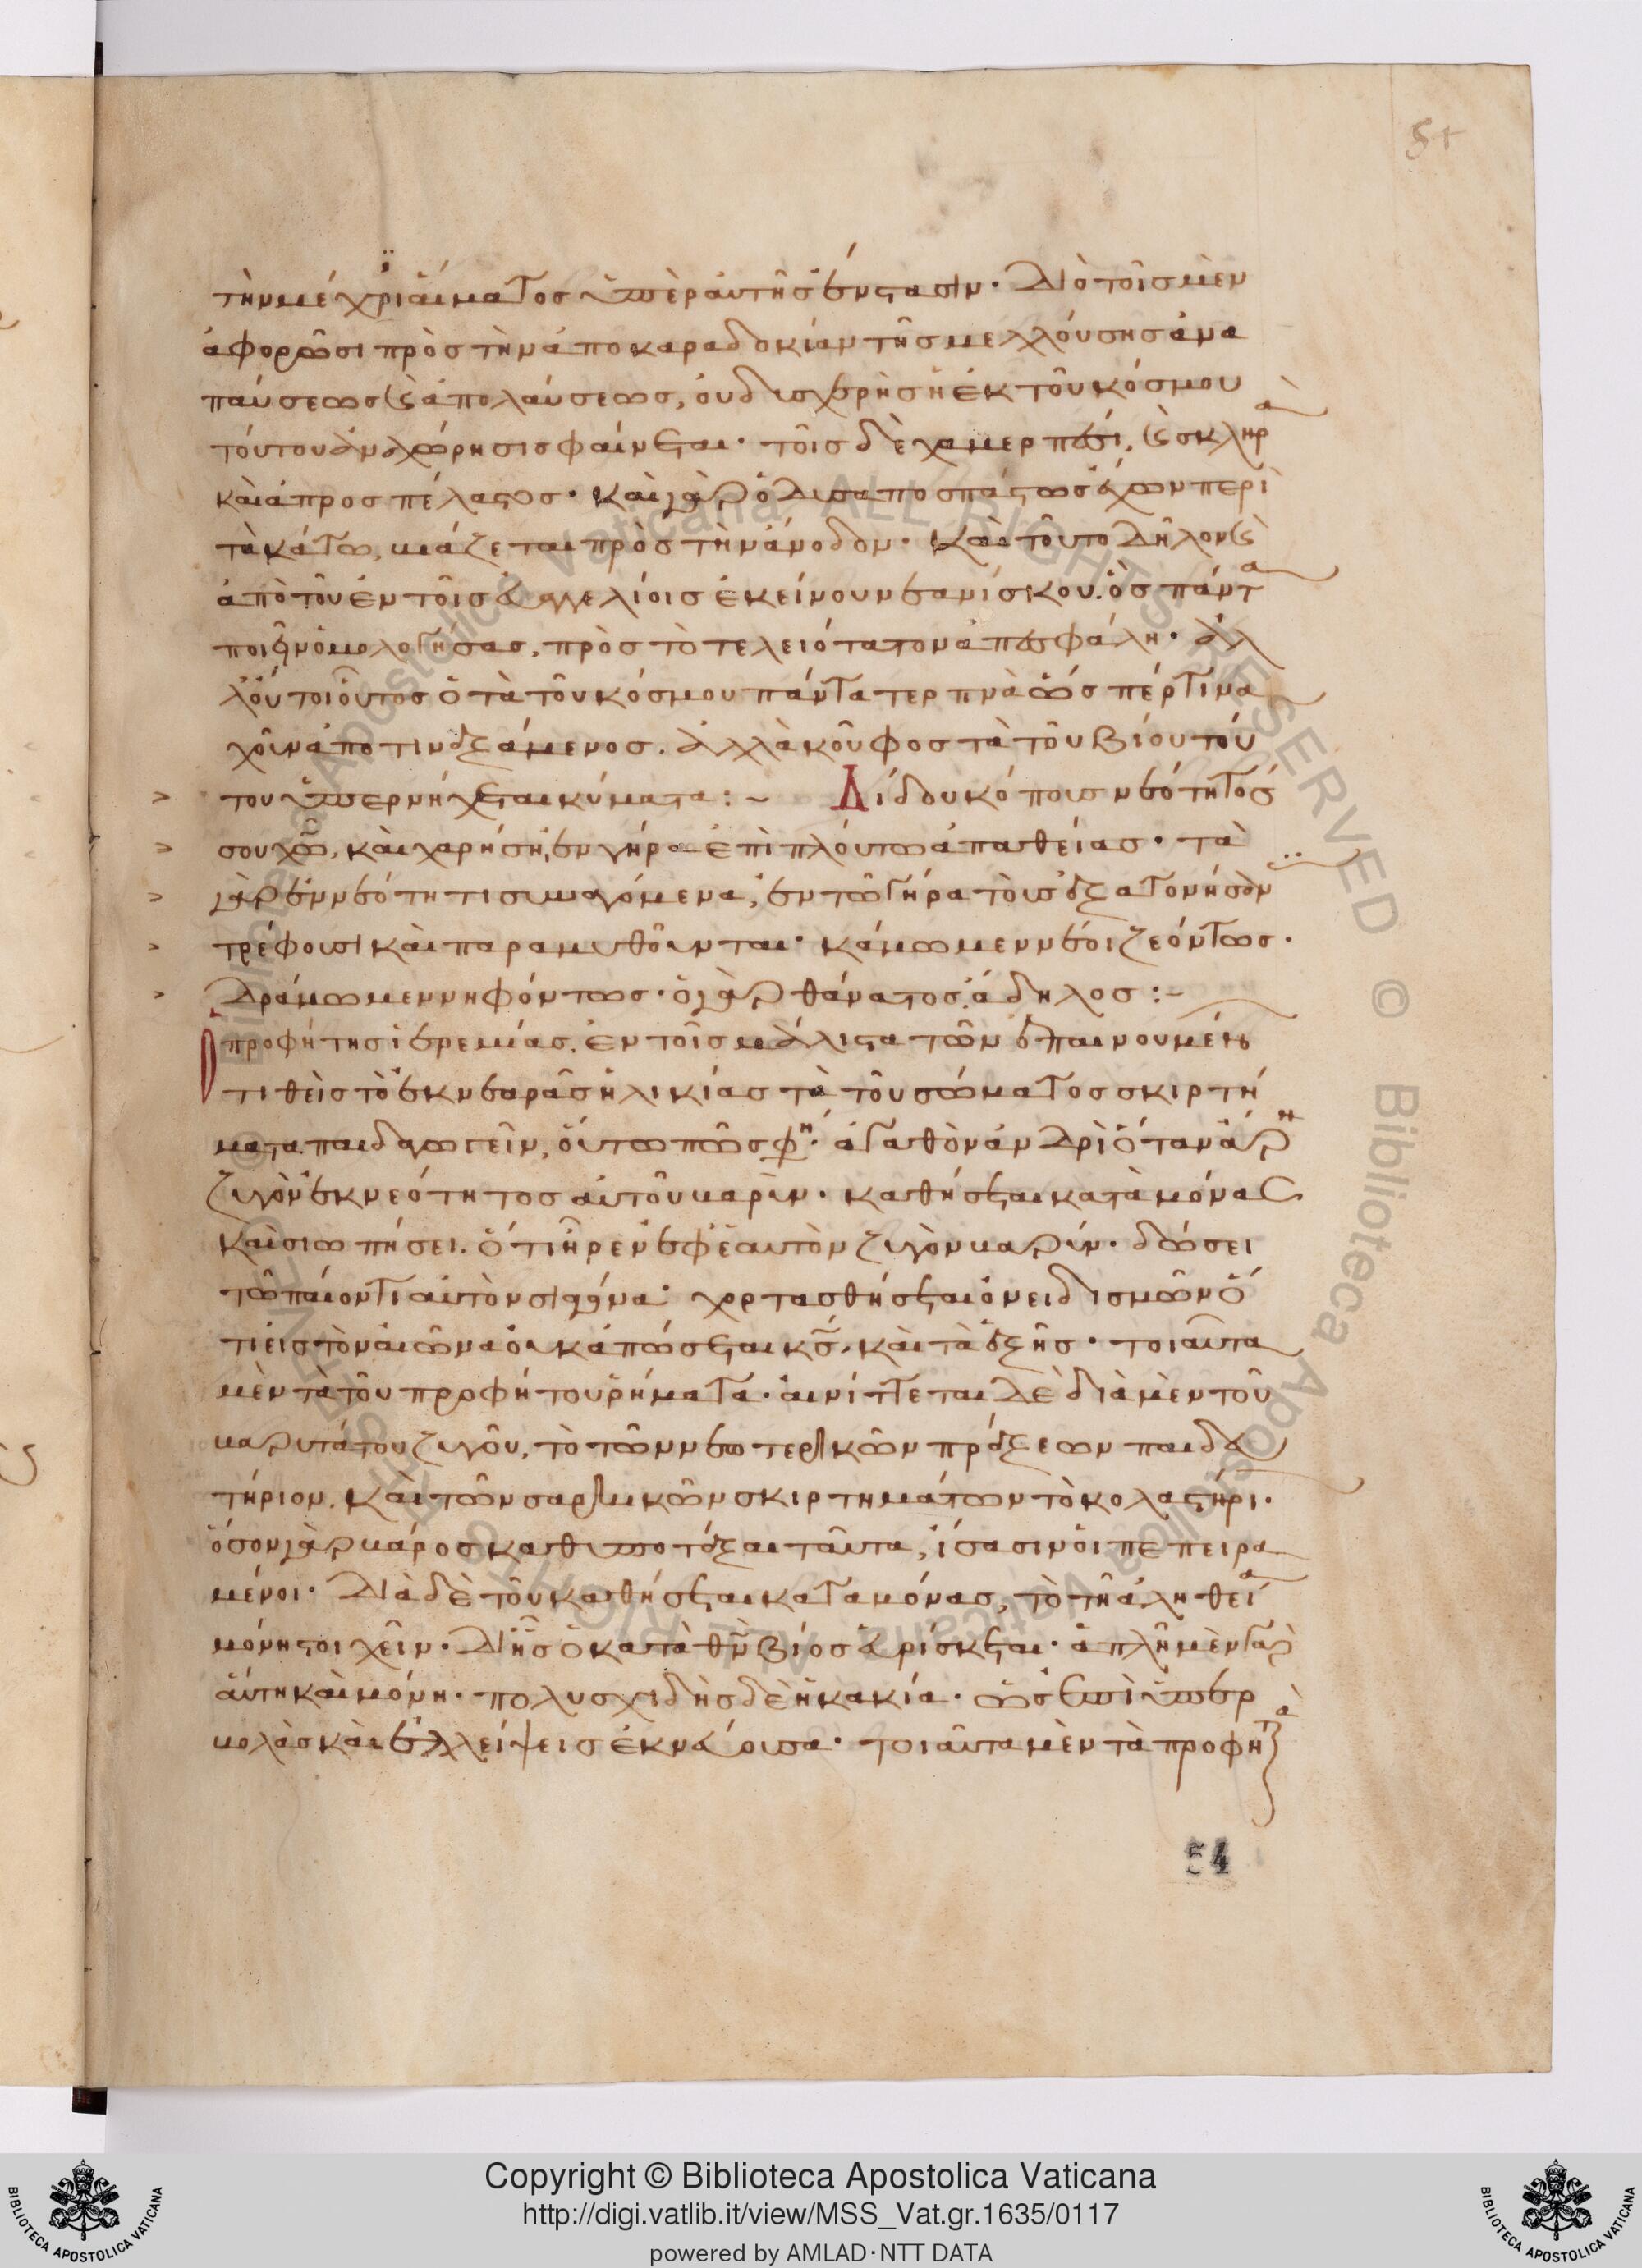 54
τὴν μέχρι αἵματος ὑπὲρ αὐτῆς ἔνστασιν. Διὸ τοῖς μὲν
ἀφορῶσι πρὸς τὴν ἀποκαραδοκίαν τῆς μελλούσης ἀνα
παύσεως καὶ ἀπολαύσεως, ἡ ἐκ τοῦ κόσμου
τούτου ἀναχώρησις φαίνεται. τοῖς δὲ χαμερπέσι, καὶ σκληρὰ
καὶ ἀπροσπέλαστος. καὶ γὰρ ὁ δυσαποσπάστως ἔχων περὶ
τὰ κάτω, βιάζεται πρὸς τὴν ἄνοδον. καὶ τοῦτο δῆλον καὶ
ἀπὸ τοῦ ἐν τοῖς εὐαγγελίοις ἐκείνου νεανίσκου. ὃς πάντα
ποιεῖν ὁμολογήσας, πρὸς τὸ τελειότατον ἀπεσφάλη. ἀλ
λ' οὐ τοιοῦτος ὁ τὰ τοῦ κόσμου πάντα τερπνὰ ὥσπερ τινα
χοῦν ἀποτιναξάμενος. ἀλλὰ κοῦφος τὰ τοῦ βίου τού
του ὑπερνήχεται κύματα:~ Δίδου κόπους νεότητός
σου χῶ, καὶ χαρήσῃ ἐν γήρᾳ ἐπὶ πλούτῳ ἀπαθείας. τὰ
γὰρ ἐν νεότητι συναγόμενα, ἐν τῷ γήρᾳ τοὺς ἐξατονήσαντας
τρέφουσι καὶ παραμυθοῦνται. κάμωμεν νέοι ζεόντως.
δράμωμεν νηφόντως. ὁ γὰρ θάνατος, ἄδηλος:~
προφήτης ἱερεμίας. ἐν τοῖς μάλιστα τῶν ἐπαινουμένων
τιθεὶς τὸ ἐκ νεαρᾶς ἡλικίας τὰ τοῦ σώματος σκιρτή
ματα παιδαγωγεῖν, οὕτω πῶς φη. ἀγαθὸν ἀνδρὶ ὅταν ἄρῃ
ζυγὸν ἐκ νεότητος αὐτοῦ βαρύν. καθήσεται κατὰ μόνας
καὶ σιωπήσει. ὅτι ἦρεν ἐφ' ἑαυτὸν ζυγὸν βαρύν. δώσει
τῷ παίοντι αὐτὸν σιαγόνα. χορτασθήσεται ὀνειδισμῶν ὅ
τι εἰς τὸν αἰῶνα οὐκ ἀπώσεται κς, καὶ τὰ ἑξῆς. τοιαῦτα
μὲν τὰ τοῦ προφήτου ῥήματα. αἰνίττεται δὲ διὰ μὲν τοῦ
βαρυτάτου ζυγοῦ, τὸ τῶν νεωτερικῶν πράξεων παιδευ
τήριον. καὶ τῶν σαρκικῶν σκιρτημάτων τὸ κολαστήρι.
ὅσον γὰρ βάρος καθυποτάξαι ταῦτα, ἴσασιν οἱ πεπειρα
μένοι. διὰ δὲ τοῦ καθήσεται καταμόνας, τὸ τῇ ἀληθείᾳ
μόνῃ στοιχεῖν. δι' ἧς ὁ κατὰ θν βίος εὑρίσκεται. ἁπλῆ μὲν γὰρ
αὕτη καὶ μόνη. πολυσχιδὴς δὲ ἡ κακία. ὡς ἐπὶ ὑπερ
βολὰς καὶ ἐλλείψεις ἐκνεύουσα. τοιαῦτα μὲν τὰ προφητ
54
Copyright © Biblioteca Apostolica Vaticana
http://digi.vatlib.it/view/MSS_Vat.gr.1635/0117
powered by AMLAD·NTT DATA
BIBLIOTECA APOSTOLICA VATICANA
BIBLIOTECA APOSTOLICA VATICANA